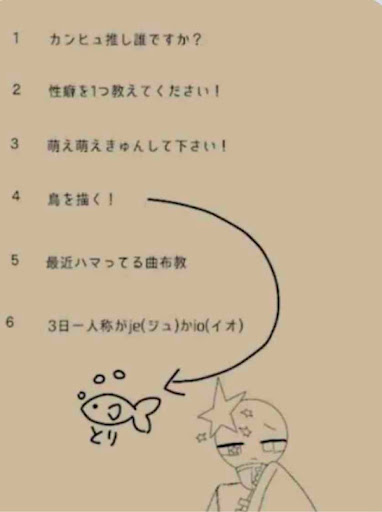 1 カンヒュ推し誰ですか？
2 性癖を1つ教えてください！
3 萌え萌えきゅんして下さい！
4 鳥を描く！
5 最近ハマってる曲布教
6 3日一人称がje(ジュ)かio(イオ)
とり